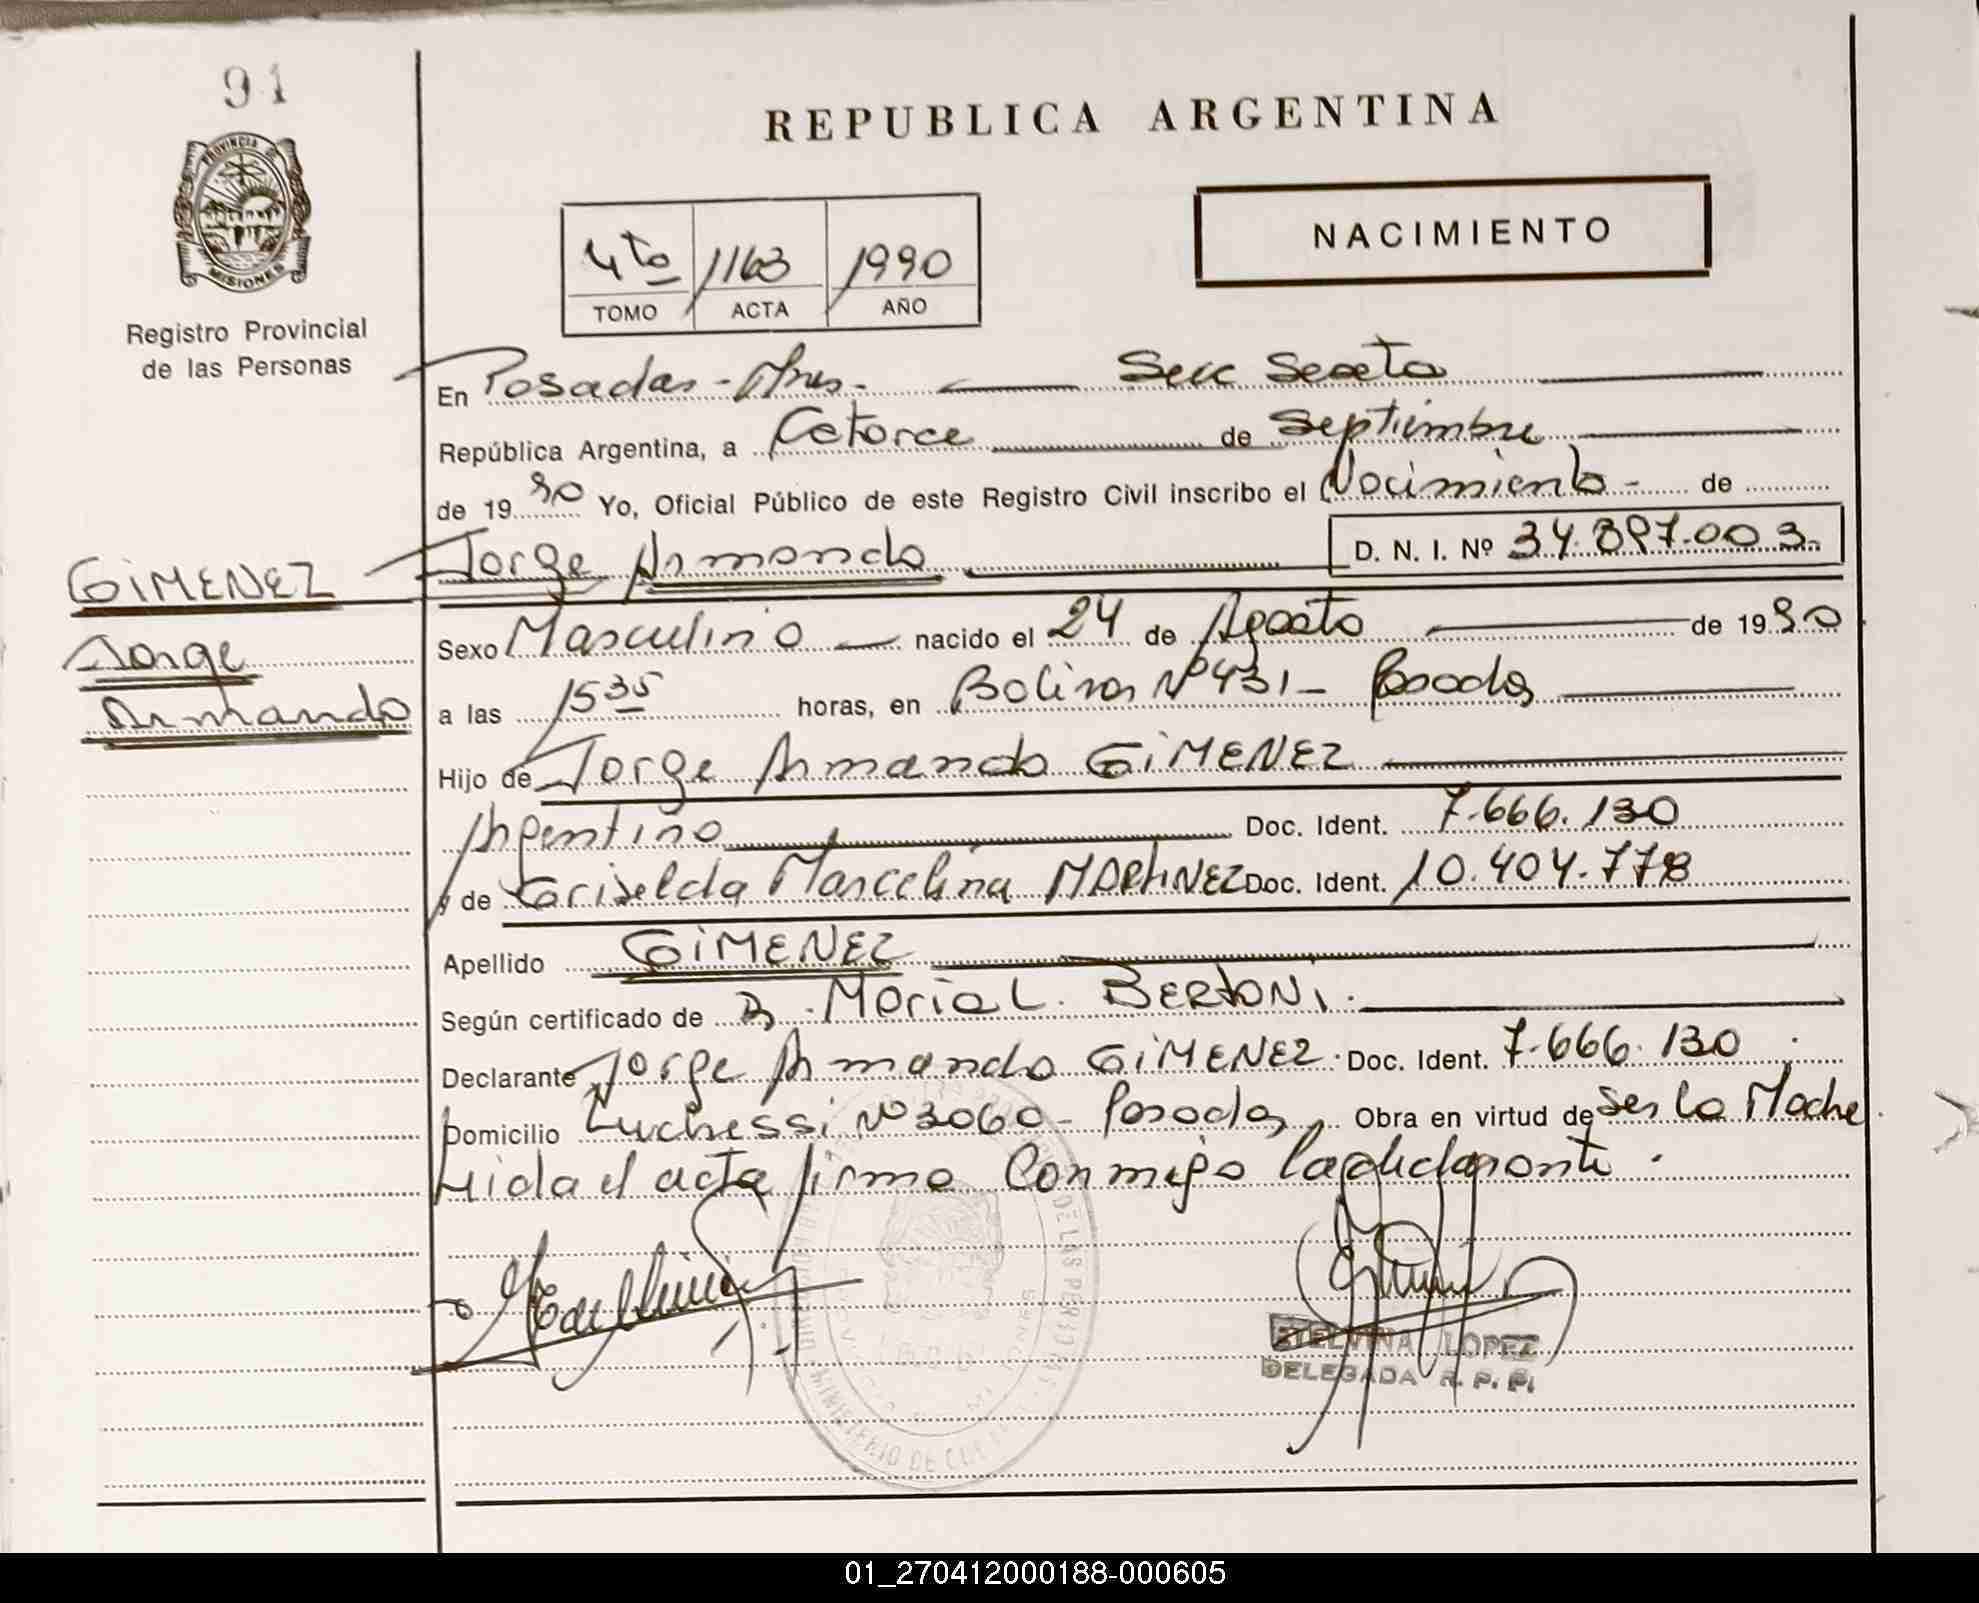 91
REPUBLICA ARGENTINA
PROVINCIA DE
MISIONES
Registro Provincial
de las Personas
4to 1163 1990
TOMO ACTA AÑO
NACIMIENTO
En Posadas - Mnes - Secc Sexta
República Argentina, a Catorce de Septiembre
de 1990 Yo, Oficial Público de este Registro Civil inscribo el Nacimiento - de
Jorge Armando D. N. I. Nº 34.897.003.
GiMENEZ
Jorge
Armando
Sexo Masculino nacido el 24 de Agosto de 1990
a las 15 35 horas, en Bolivar Nº 431 - Posadas
Hijo de Jorge Armando GiMENEZ
Argentino Doc. Ident. 7.666.130
y de Griselda Marcelina MARtiNEZ Doc. Ident. 10.404.778
Apellido GiMENEZ
Según certificado de Maria L. BERTONi.
Declarante Jorge Armando GiMENEZ. Doc. Ident. 7.666.130
Domicilio Luchessi Nº 3060 - Posadas Obra en virtud de Ser la Madre
Leida el acta firma Conmigo la declarante.
DE LAS PERSONAS
MINISTERIO DE
ETELVINA LOPEZ
DELEGADA R. P. P.
01_270412000188-000605